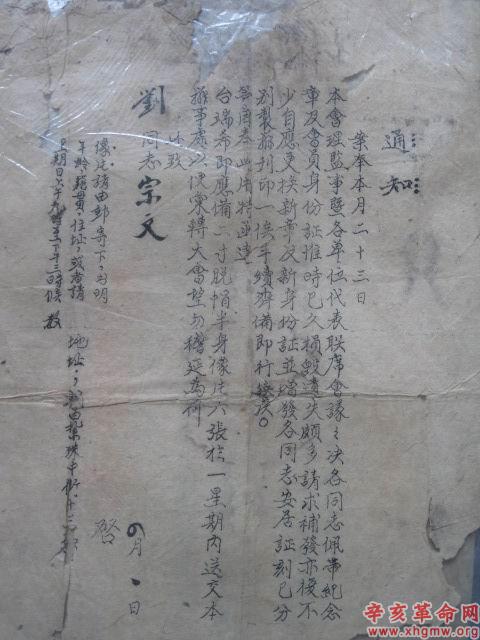 通知
案奉本月二十三日
本會理監事暨各單位代表联席會議之决各同志佩帶紀念
章及會員身份証惟時已久損毀遺失頗多請求補發亦復不
少自應更换新章及新身份証並增發各同志安居証刻已分
别製刊印一俟手續齊備即行
台端希即應備二寸脱帽半身像片六張於一星期内送交本
辦事處以便彙轉大會整勿稽延為荷
此致
劉同志宗文
像片請由郵寄下，註明
年龄籍貫，住址，或者請
地址，
啓
月 日
辛亥革命网
www.xhgmw.org